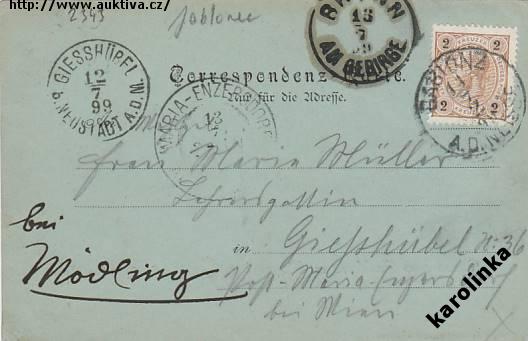 http://www.auktiva.cz/
2343
Jablonec
BRUNN
13
7
99
AM GEBIRGE
2 2
2 2
GABLONZ
A.D. NEISSE
GIESSHÜPEL
12
7
99
b. NEUSTADT A.D.M.
Correspondenz-Karte.
Nur für die Adresse.
MARIA-ENZERSDORF
13
Frau Maria Müller
Lehrersgattin
in Giesshübel No 36
bei
Mödling
Post Maria Enzersdorf
bei Wien
karolinka